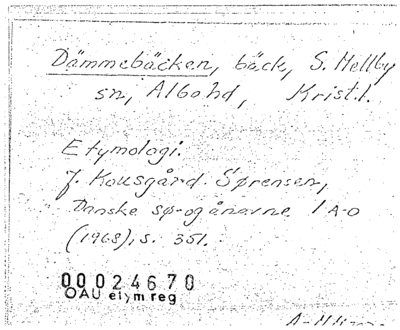 Dämmebäcken, bäck, S. Mellby
sn, Albo hd, Krist.l.
Etymologi.
J. Kousgård Sørensen,
Danske sø- og ånavne 1 A-O
(1968), s. 351.
00024670
OAU etym reg